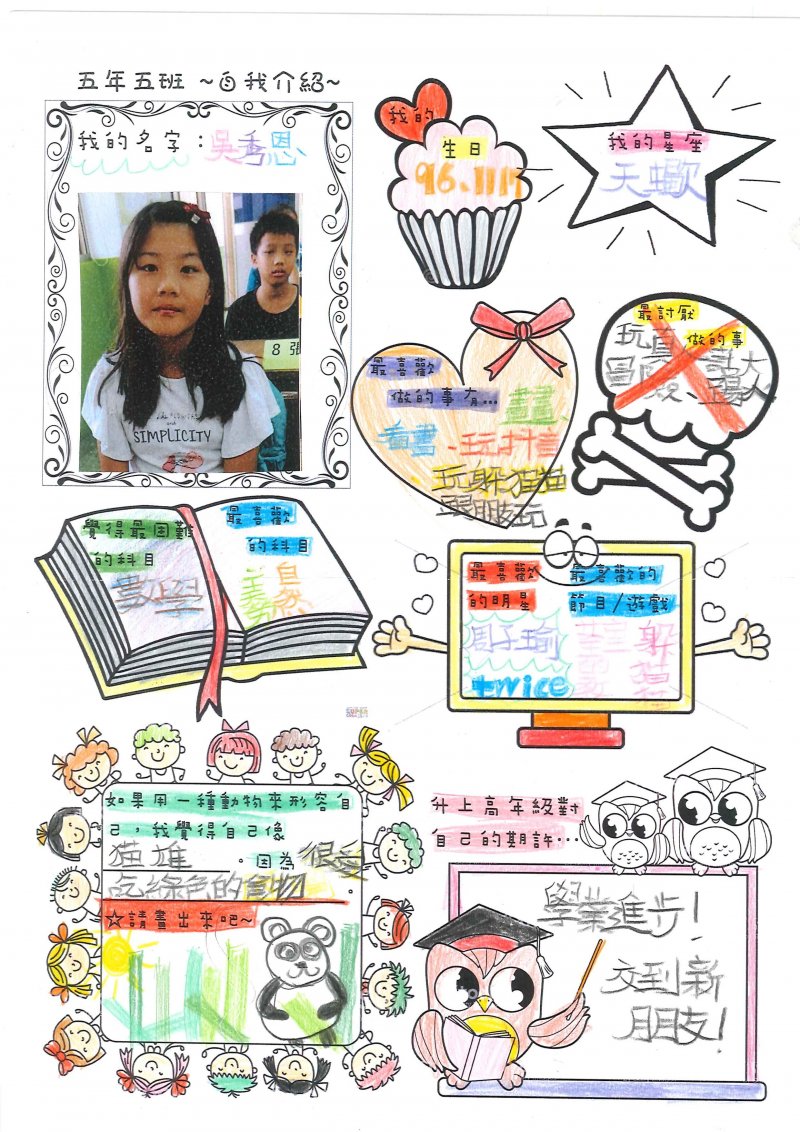 五年五班 ~自我介紹~
我的名字：吳秀恩
SIMPLICITY
8 張
我的
生日
96.11.17
我的星座
天蠍
最喜歡
做的事有...
畫畫、
看書、玩扌
玩躲貓貓
跟朋友玩
最討厭
做的事
玩真
心話大
冒險、
人
覺得最困難
的科目
數學
最喜歡
的科目
自然
最喜歡
的明星
周子瑜
twice
最喜歡的
節目/遊戲
躲
貓
如果用一種動物來形容自
己，我覺得自己像
猫雄。因為很愛
吃綠色的食物
☆請畫出來吧~
升上高年級對
自己的期許...
學業進步!
交到新
朋友!